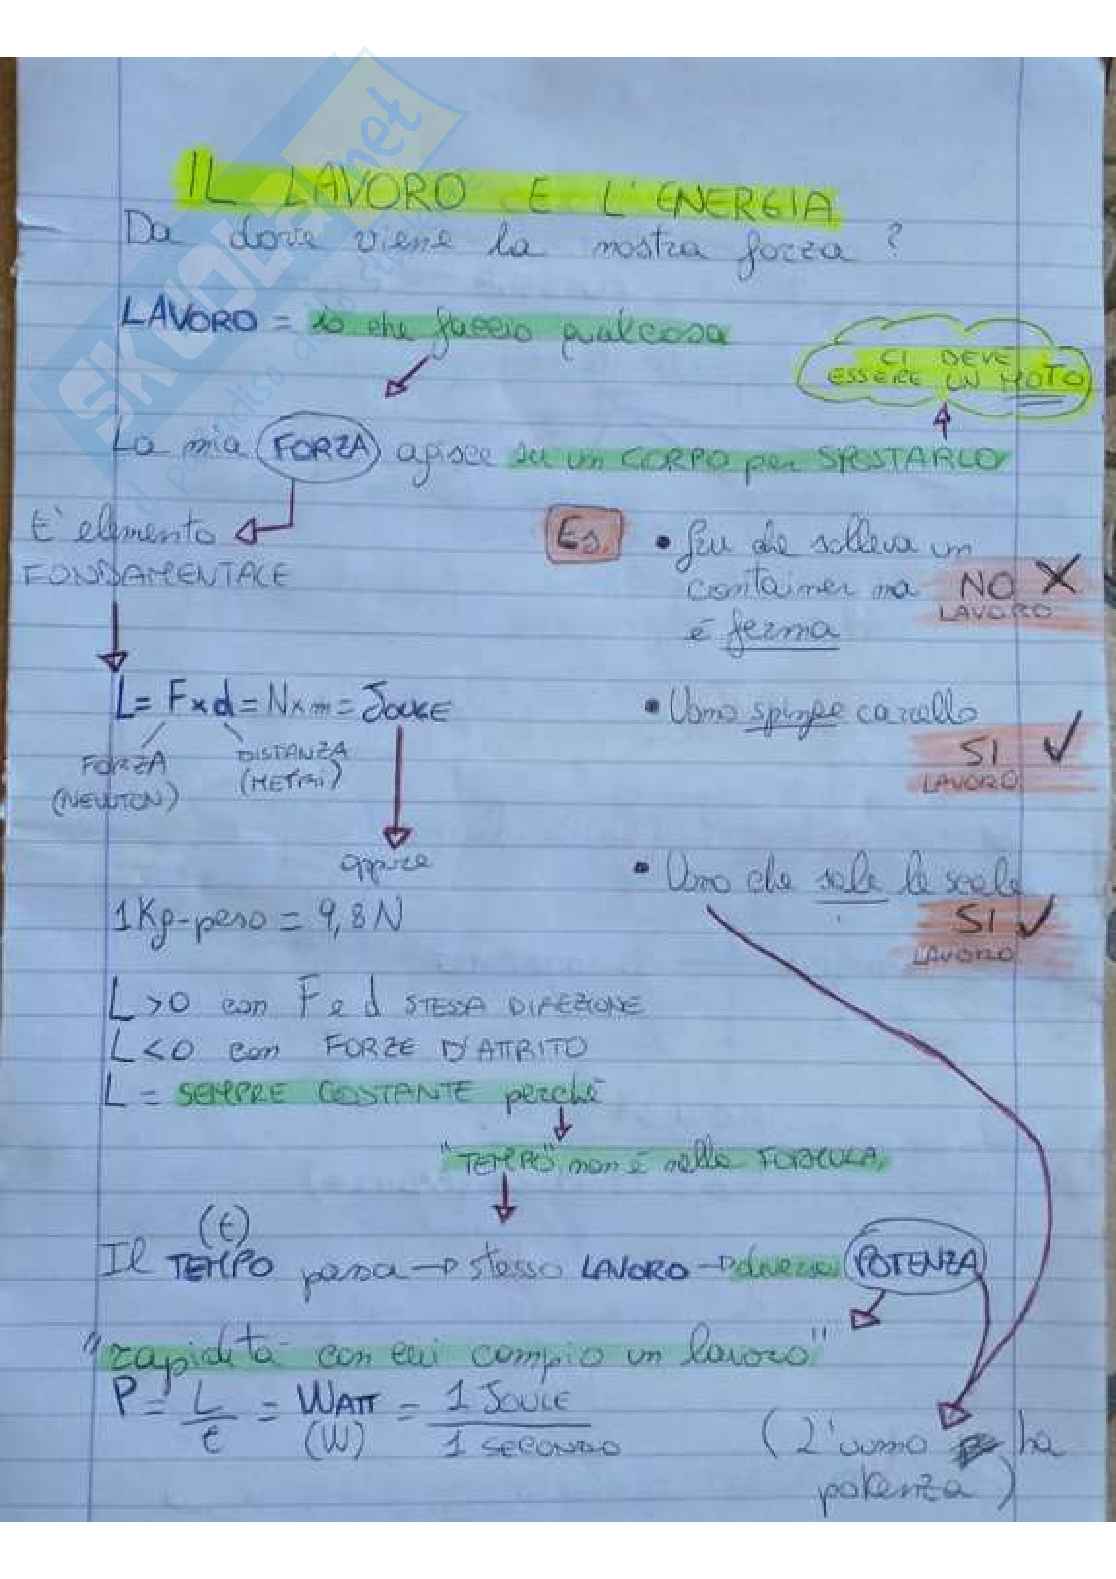 IL LAVORO E L'ENERGIA
Da dove viene la nostra forza?
LAVORO = io che faccio qualcosa
CI DEVE
ESSERE UN MOTO
La mia FORZA agisce su un CORPO per SPOSTARLO
E' elemento
FONDAMENTALE
Es.
• Gru che solleva un
container ma
è ferma
NO X
LAVORO
L = F x d = N x m = JOULE
FORZA
(NEWTON)
DISTANZA
(METRI)
• Uomo spinge carrello
SI ✓
LAVORO
oppure
1 Kg-peso = 9,8 N
• Uomo che sale le scale
SI ✓
LAVORO
L > 0 con F e d STESSA DIREZIONE
L < 0 con FORZE D'ATTRITO
L = SEMPRE COSTANTE perchè
"TEMPO" non è nella FORMULA
(t)
Il TEMPO passa → stesso LAVORO → diversa POTENZA
"rapidità con cui compio un lavoro"
P = L/t = WATT (W) = 1 JOULE / 1 SECONDO
(L'uomo ha
potenza)
SKUOLA.net
il paradiso dello studente